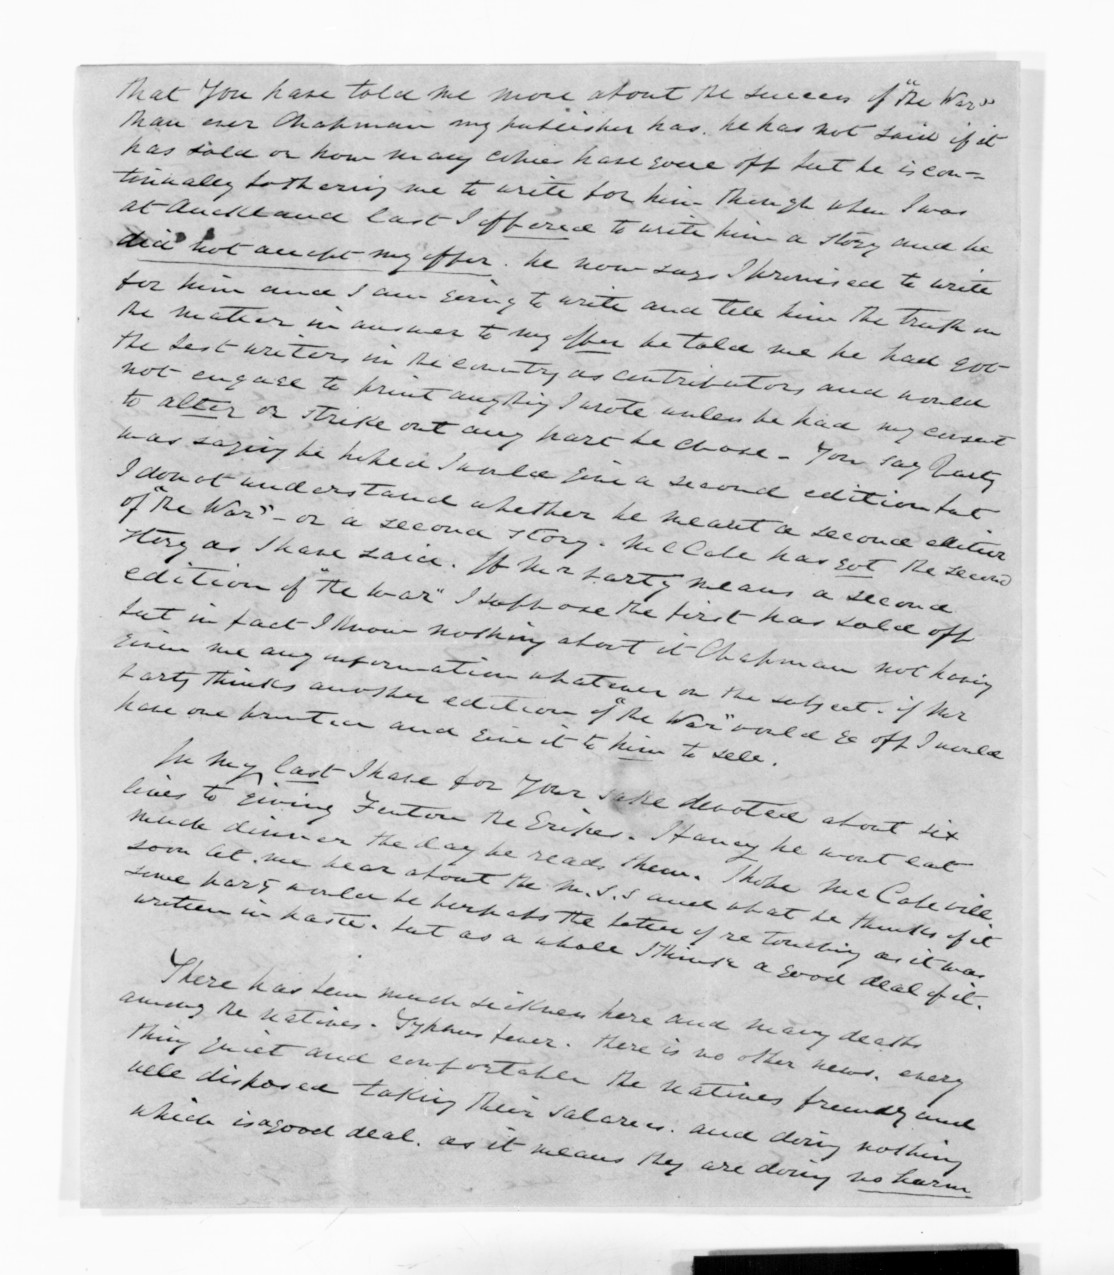 that You have told me more about the success of "the War"
than ever Chapman my publisher has. he has not said if it
has sold or how many copies have gone off but he is con=
tinually bothering me to write for him though when I was
at Auckland last I offered to write him a story and he
did not accept my offer. he now says I promised to write
for him and I am going to write and tell him the truth on
the matter in answer to my offer he told me he had got
the best writers in the country as contributors and would
not engage to print anything I wrote unless he had my consent
to alter or strike out any part he chose - You say Harty
was saying he hoped I would give a second edition but
I do not understand whether he meant a second edition
of "the War" - or a second story. McCabe has got the second
story as I have said. If Mr Harty means a second
edition of "the War" I suppose the first has sold off
but in fact I know nothing about it Chapman not having
given me any information whatever on the subject. if Mr
Harty thinks another edition of "the War" would go off I would
have one printed and give it to him to sell.
In my last I have for Your sake devoted about six
lines to giving Fenton the Gripes. I fancy he wont eat
much dinner the day he reads them. I hope McCabe will
soon let me hear about the M.S.S and what he thinks of it
some parts would be perhaps the better of re touching as it was
written in haste. but as a whole I think a good deal of it.
There has been much sickness here and many deaths
among the natives. Typhus fever. there is no other news. every
thing quiet and comfortable the natives friendly and
well disposed taking their salaries. and doing nothing
which is a good deal. as it means they are doing no harm